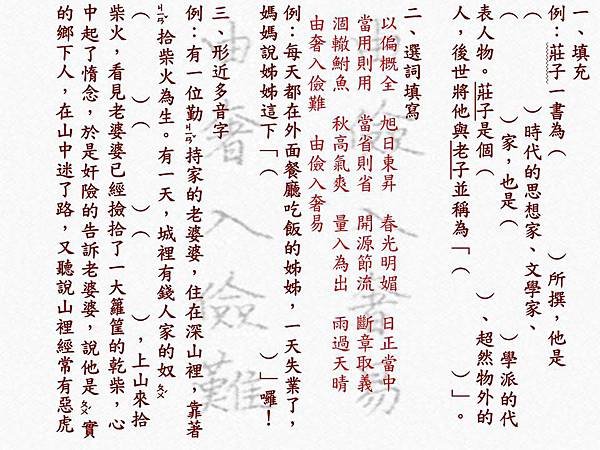 由儉入奢易
由奢入儉難
一、填充
例：莊子一書為（　　）所撰，他是
（　　）時代的思想家、文學家、
（　　）家，也是（　　）學派的代
表人物。莊子是個（　　）、超然物外的
人，後世將他與老子並稱為「（　　）」。
二、選詞填寫
以偏概全　旭日東昇　春光明媚　日正當中
當用則用　當省則省　開源節流　斷章取義
涸轍鮒魚　秋高氣爽　量入為出　雨過天晴
由奢入儉難　由儉入奢易
例：每天都在外面餐廳吃飯的姊姊，一天失業了，
媽媽說姊姊這下「（　　）」囉！
三、形近多音字
例：有一位勤ㄐㄧㄢˇ持家的老婆婆，住在深山裡，靠著
ㄐㄧㄢˇ拾柴火為生。有一天，城裡有錢人家的奴ㄆㄨˊ
（　　）（　　）（　　），上山來拾
柴火，看見老婆婆已經撿拾了一大籮筐的乾柴，心
中起了惰念，於是奸險的告訴老婆婆，說他是ㄆㄨˊ實
的鄉下人，在山中迷了路，又聽說山裡經常有惡虎